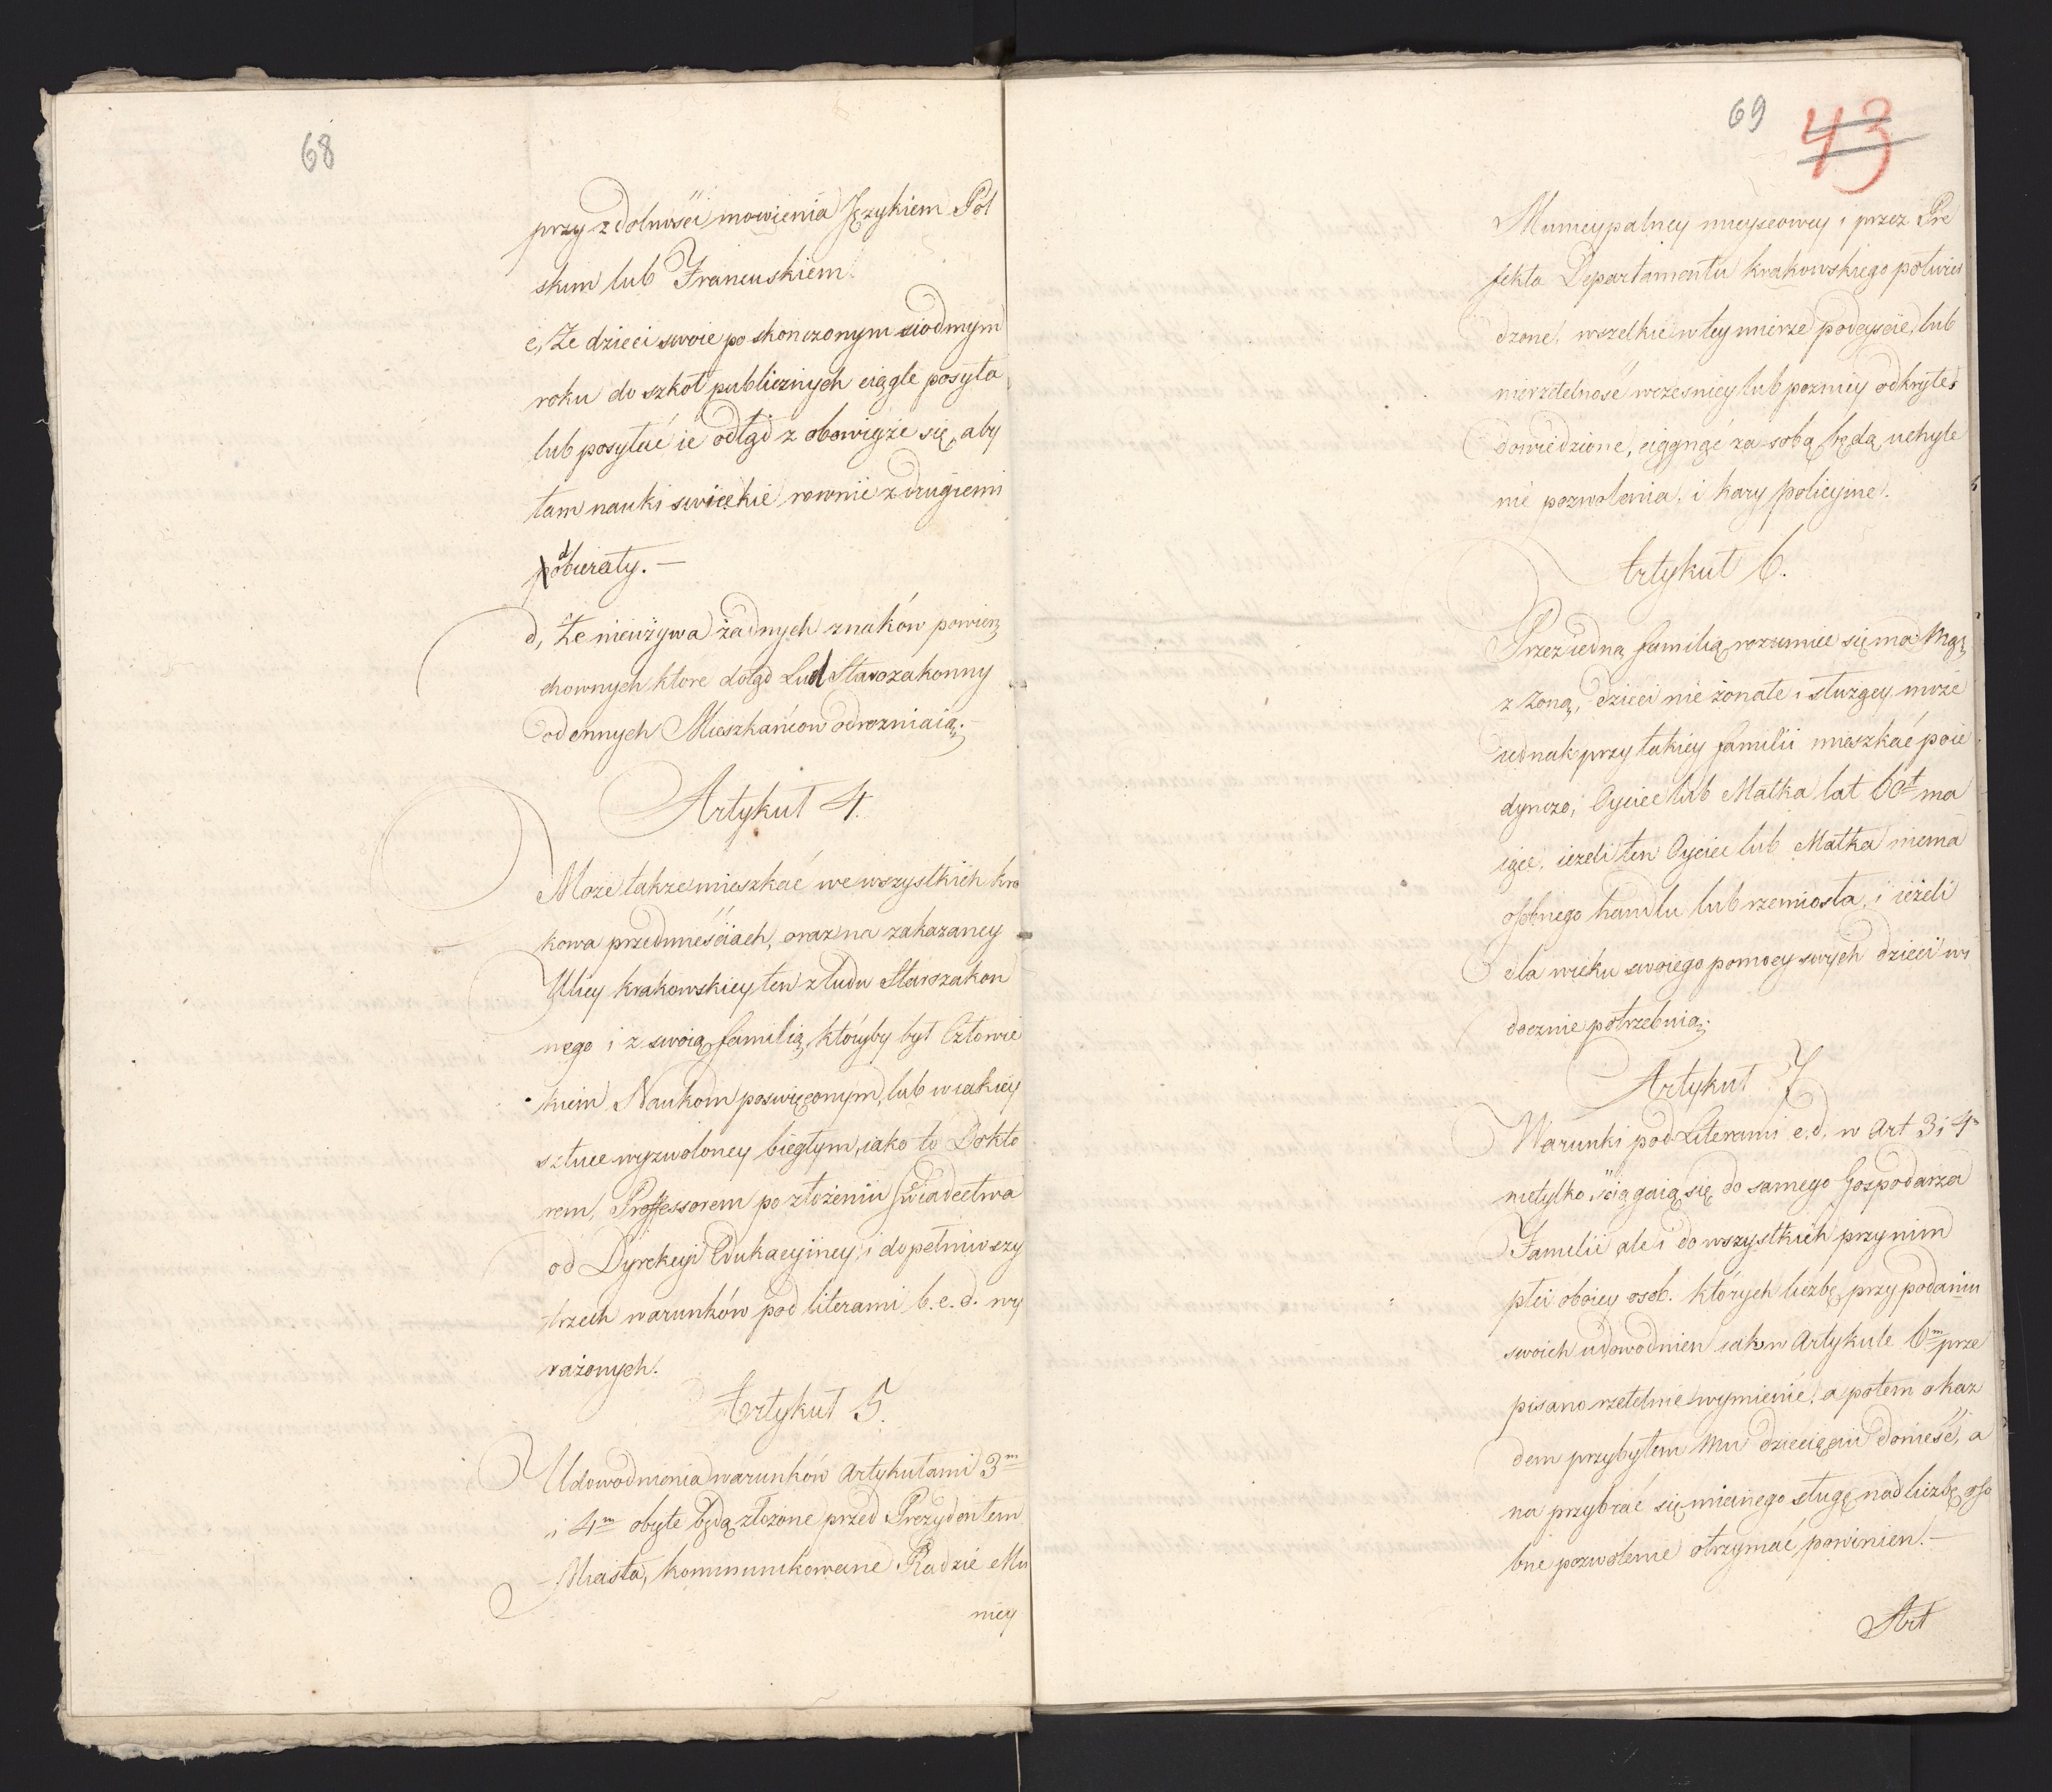 68
przy zdolności mowienia Językiem Pol
skim lub Francuskiem.
c, Ze dzieci swoie po skonczonym siodmym
roku do szkół publicznych ciągle posyła
lub posyłać ie odtąd zobowiąże się, aby
tam nauki swieckie rownie z drugiemi
odbierały. —
d, Ze nieużywa żadnych znaków powierz
chownych ktore dotąd Lud Starozakonny
od ennych Mieszkańcow odrozniaią. —
Artykuł 4.
Moze takze mieszkać we wszystkich kra
kowa przedmieściach, oraz na zakazaney
Ulicy krakowskiey ten z ludu Starozakon
nego i z swoią familią, któryby był Człowie
kiem Naukom poswięconym, lub w iakiey
sztuce wyzwoloney biegłym, iako to Dokto
rem, Proffessorem po złożeniu świadectwa
od Dyrekcyi Edukacyiney, i dopełniwszy
trzech warunków pod literami b. c. d. wy
rażonych.
Artykuł 5.
Udowodnienia warunków Artykułami 3m
i 4m obięte będą złożone przed Prezydentem
Miasta, kommunikowane Radzie Mu
nicy
69
43
Municypalney mieyscowey i przez Pre
fekta Departamentu krakowskiego potwier
dzone, wszelkie w tey mierze podeyscie, lub
nierzetelność wczesniey lub pozniey odkryte i
dowiedzione, ciągnąć za sobą będą uchyle
nie pozwolenia, i kary policyjne.
Artykuł 6.
Przez iedną familią rozumiec się ma: Mąż
z Zoną, dzieci nie żonate i służący, moze
iednak przy takiey familii mieszkać poie
dynczo, Oyciec lub Matka lat 60t ma
iące, iezeli ten Oyciec lub Matka niema
osobnego handlu lub rzemiosła, i ieżeli
dla wieku swoiego pomocy swych dzieci wi
docznie potrzebuią.
Artykuł 7
Warunki pod Literami c, d, w Art 3 i 4m
nietylko ściągaią się do samego Gospodarza
Familii ale i do wszystkich przy nim
płci oboiey osob. których liczbę przy podaniu
swoich udowodnien iak w Artykule 6m prze
pisano rzetelnie wymienić, a potem o kaz
dem przybyłem Mu dziecięciu donieść, a
na przybrać się mieinego sługę nad liczbę oso
bne pozwolenie otrzymać, powinien. —
Art